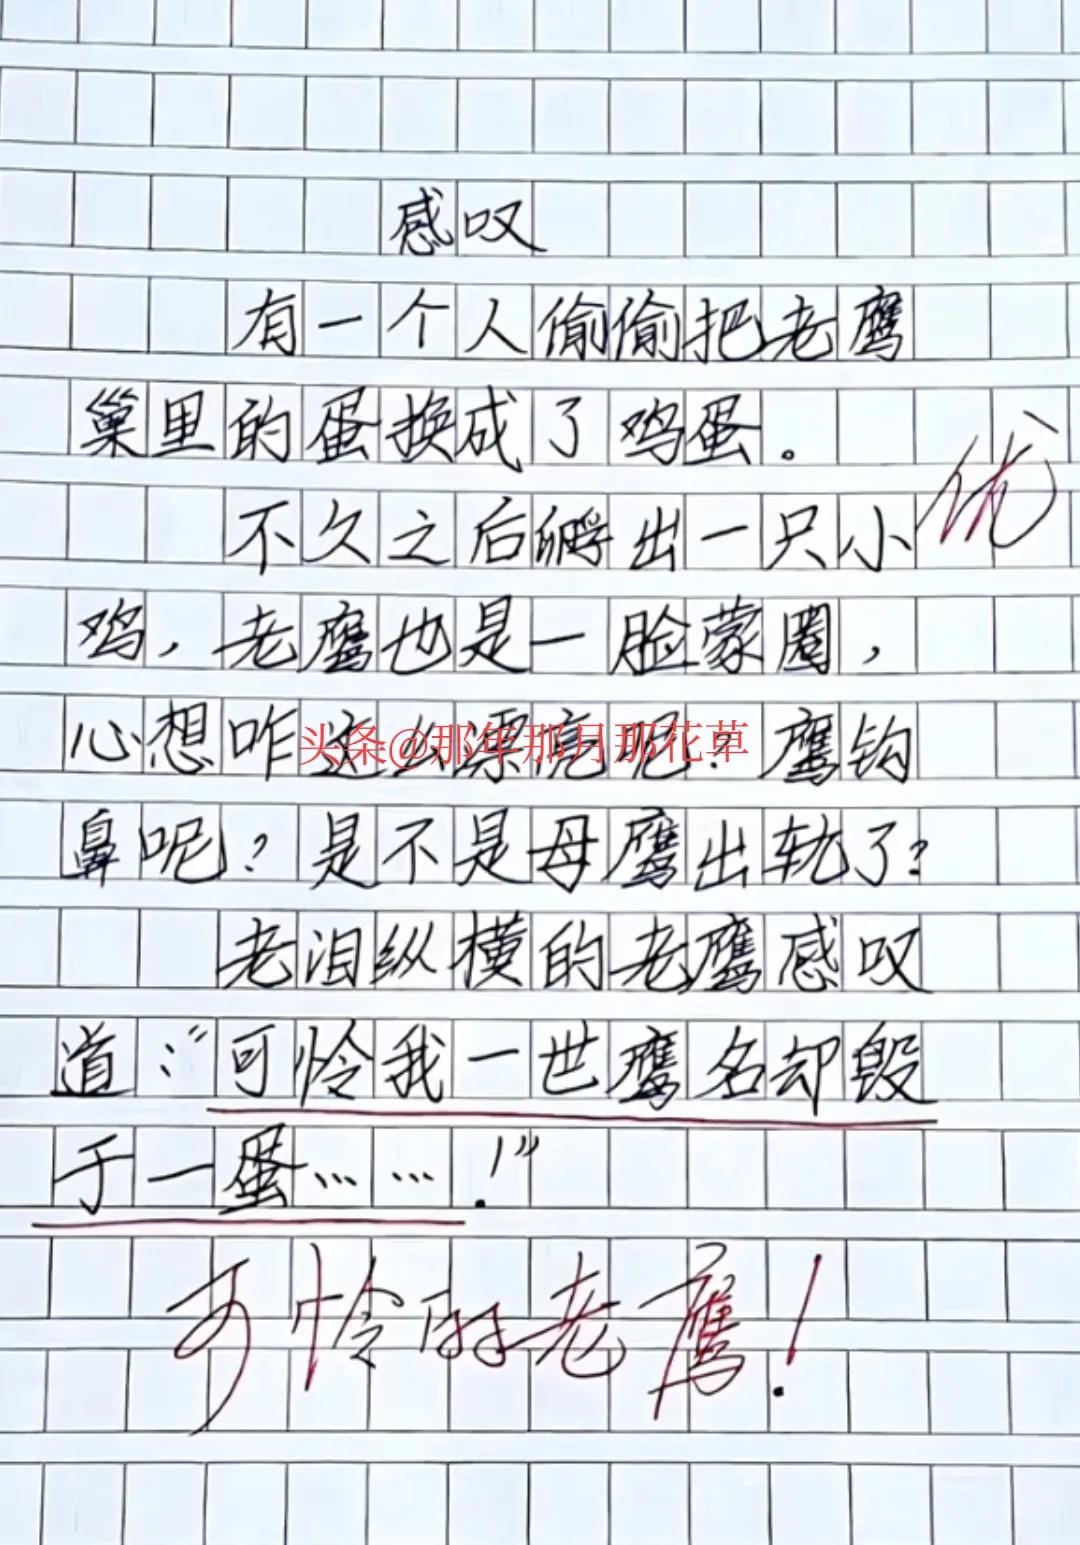 感叹
有一个人偷偷把老鹰
巢里的蛋换成了鸡蛋。
优
不久之后孵出一只小
鸡，老鹰也是一脸蒙圈，
心想咋这么漂亮呢？鹰钩
头条@那年那月那花草
鼻呢？是不是母鹰出轨了？
老泪纵横的老鹰感叹
道：“可怜我一世鹰名却毁
于一蛋……！”
可怜的老鹰！